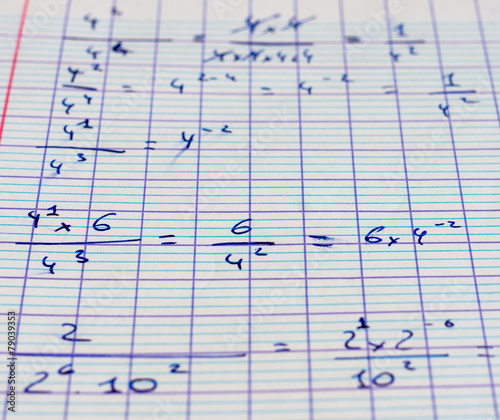 4² / 4⁴ = 4×4 / 4×4×4×4 = 1 / 4²
4² / 4⁴ = 4²⁻⁴ = 4⁻² = 1 / 4²
4¹ / 4³ = 4⁻²
4¹ × 6 / 4³ = 6 / 4² = 6 × 4⁻²
2 / 2⁶ · 10² = 2¹ × 2⁻⁶ / 10² =